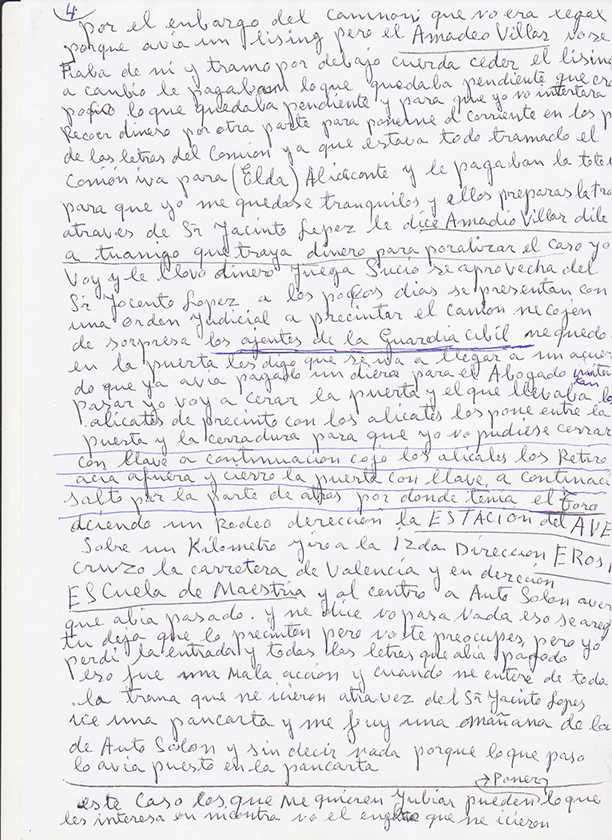 4
por el enbargo del camnon que no era legal
porque avia un lising pero el Amadeo Villar no se
Fiaba de ni y tramo por debajo cuerda ceder el lising
a canbio le pagaban lo que quedaba pendiente que era
poquo lo que quedaba pendiente y para que yo no intentara
Recoer dinero por otra parte para ponerme al corriente en los p
de las letras del Camion ya que estava todo tramado el
Comion iva para (Elda) Alicante y le pagaban la tota
para que yo me quedase tranquilos y ellos preparas la tra
atraves de Sr Jacinto Lepez le dice Amadio Villar dile
a tuanigo que traya dinero para poralizar el caso yo
Voy y le llevo dinero Juega Sucio se aprovecha del
Sr Jocento Lopez a los poqos dias se presentan con
una orden Judicial a precintar el camon ne cojen
de sorpresa los ajentes de la Guardia Cibil me quedo
en la puerta les digo que se va a llegar a un acuer
do que ya avia pagado un diero para el Abogado
pasar yo voy a cerar la puerta y el que llevaba lo
alicates de precinto con los alicates los pone entre la
puerta y la cerradura para que yo no pudiese cerrar
con llave a continuacion cojo los alicates los Retiro
acia afuera y cierro la puerta con llave, a continaci
salto por la parte de atras por donde tenia el Toro
dciendo un Rodeo derección la ESTACIÓN del AVE
Sobre un Kilometro yiro a la Izda Dirección EROSI
cruzo la carretera de Valencia y en derción
ESCuela de Maestria y al centro a Auto Solon aver
que abia pasado. y ne dice no pasa Nada eso se areg
tu deja que lo precinten pero no te preocupes, pero yo
perdi la entrada y todas las letras que abia pagado
eso fue una Mala acción y cuando ne enteré de toda
la trana que ne icieron atravez del Sr Jacinto Lopes
ice una pancarta y me fuy una mañana de la
de Auto Solon y sin decir nada porque lo que paso
lo avia puesto en la pancarta
→ Poner
este Caso los que Me quieren Yubiar pueden lo que
les interesa en no el que ne icieron